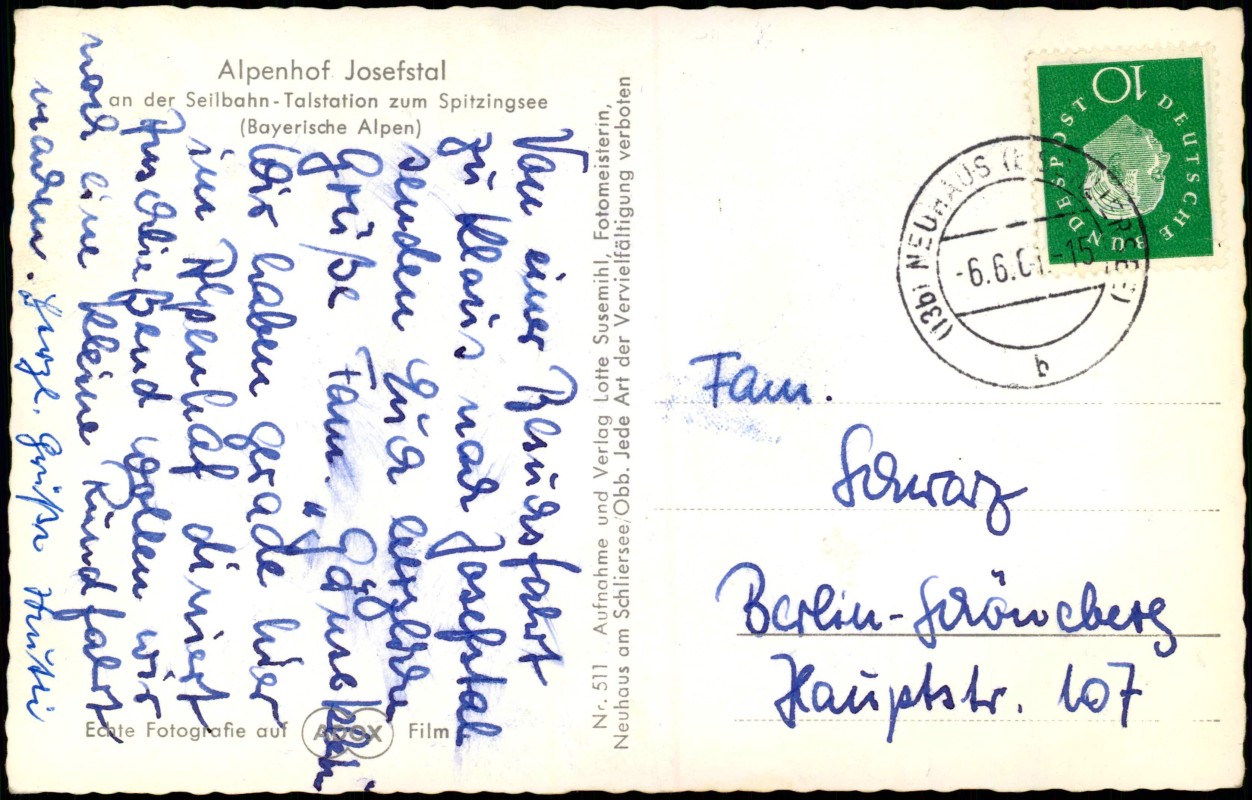 Alpenhof Josefstal
an der Seilbahn-Talstation zum Spitzingsee
(Bayerische Alpen)
Von einer Besuchsfahrt
zu Klaus nach Josefstal
senden Euch herzliche
Grüße Fam.
Wir haben gerade hier
im Alpenhof diniert
Anschließend wollen wir
noch eine kleine Rundfahrt
machen. Herzl. Grüße
Echte Fotografie auf ADOX Film
Nr. 511 Aufnahme und Verlag Lotte Susemihl, Fotomeisterin,
Neuhaus am Schliersee/Obb. Jede Art der Vervielfältigung verboten
10
DEUTSCHE BUNDESPOST
(13b) NEUHAUS
-6.6.61.-15
Fam.
Schwarz
Berlin-Schöneberg
Hauptstr. 107